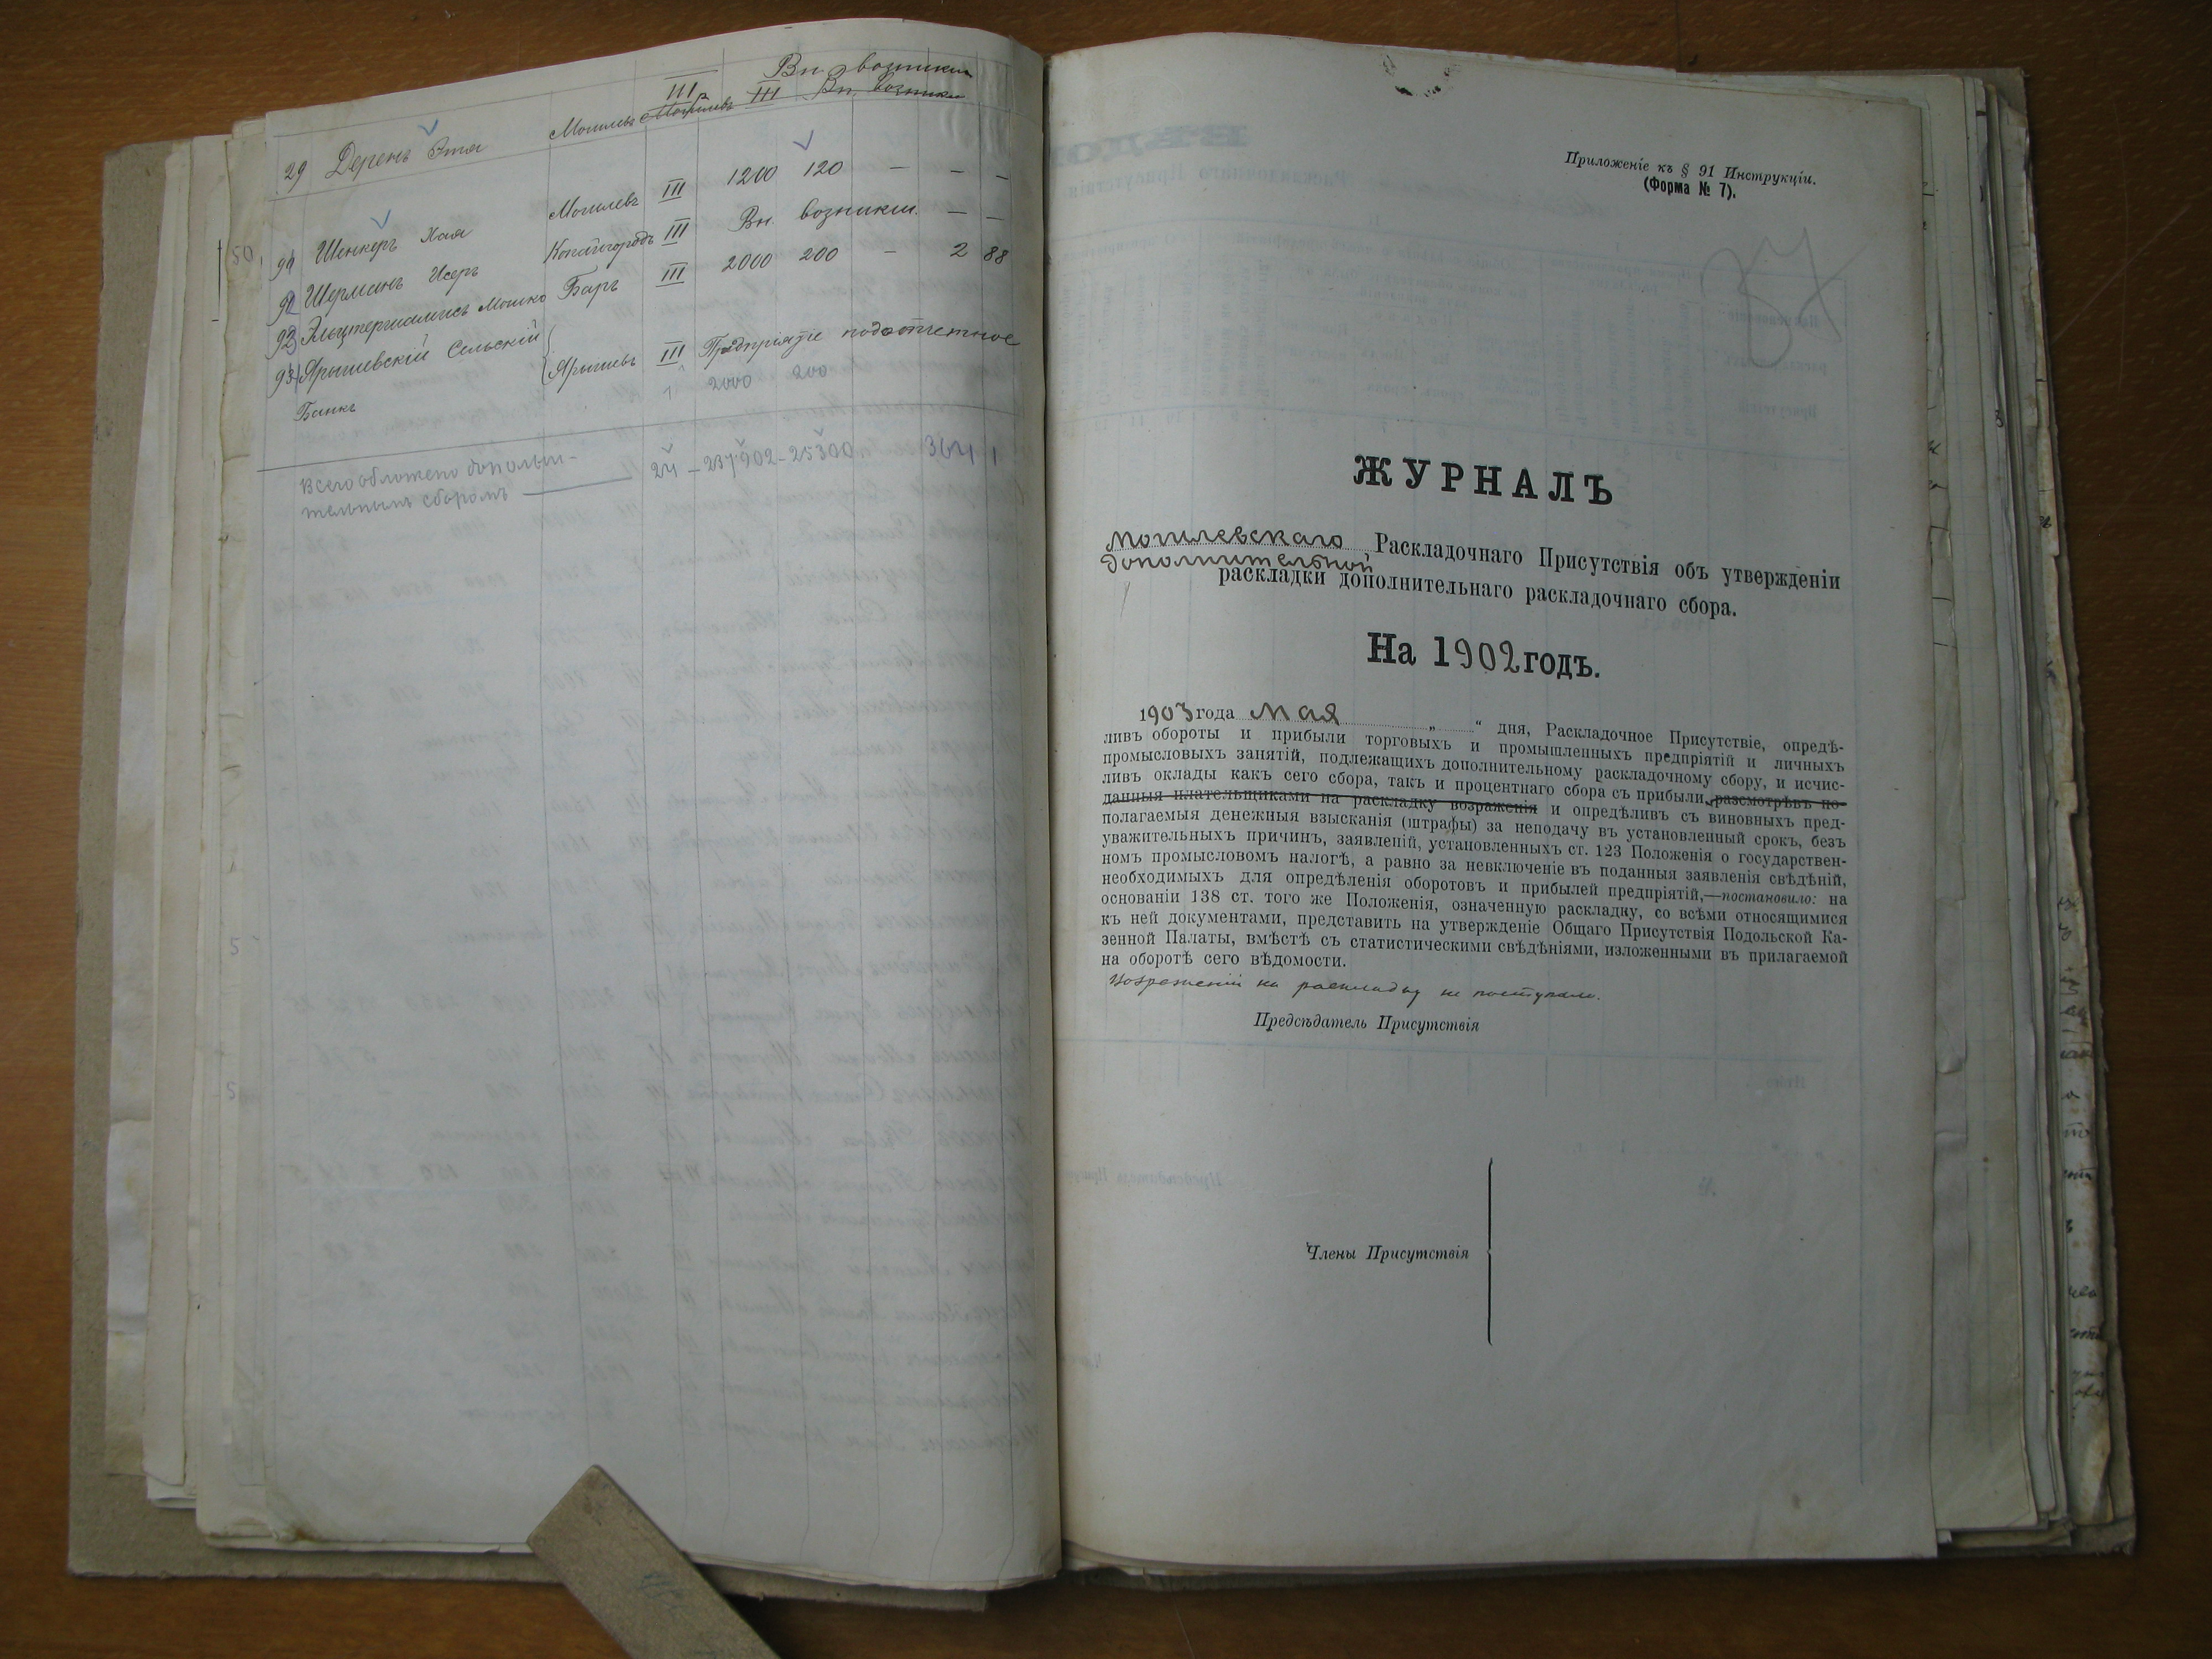 III Вн. возникш.
29 Дерень Этя Могилевъ Могилевъ III Вн. возникш.
91 Шенкеръ Хая Могилевъ III 1200 120 — — —
92 Шерманъ Исеръ Копайгородъ III Вн. возникш. — —
93 Мошко Баръ III 2000 200 — 2 88
94 Ярышевскій Сельскій Банкъ Ярышевъ III Предпріятіе подотчетное
1 2000 200
Всего обложено дополни-
тельнымъ сборомъ — 24 — 237902 — 25300 364 1
50
5
5
Приложеніе къ § 91 Инструкціи.
(Форма № 7).
37
ЖУРНАЛЪ
Могилевскаго Раскладочнаго Присутствія объ утвержденіи
дополнительной
раскладки дополнительнаго раскладочнаго сбора.
На 1902 годъ.
1903 года Мая „ “ дня, Раскладочное Присутствіе, опредѣ-
ливъ обороты и прибыли торговыхъ и промышленныхъ предпріятій и личныхъ
промысловыхъ занятій, подлежащихъ дополнительному раскладочному сбору, и исчис-
ливъ оклады какъ сего сбора, такъ и процентнаго сбора съ прибыли, разсмотрѣвъ по-
данныя плательщиками на раскладку возраженія и опредѣливъ съ виновныхъ пред-
полагаемыя денежныя взысканія (штрафы) за неподачу въ установленный срокъ, безъ
уважительныхъ причинъ, заявленій, установленныхъ ст. 123 Положенія о государствен-
номъ промысловомъ налогѣ, а равно за невключеніе въ поданныя заявленія свѣдѣній,
необходимыхъ для опредѣленія оборотовъ и прибылей предпріятій,—постановило: на
основаніи 138 ст. того же Положенія, означенную раскладку, со всѣми относящимися
къ ней документами, представить на утвержденіе Общаго Присутствія Подольской Ка-
зенной Палаты, вмѣстѣ съ статистическими свѣдѣніями, изложенными въ прилагаемой
на оборотѣ сего вѣдомости.
Возраженій на раскладку не поступало.
Предсѣдатель Присутствія
Члены Присутствія